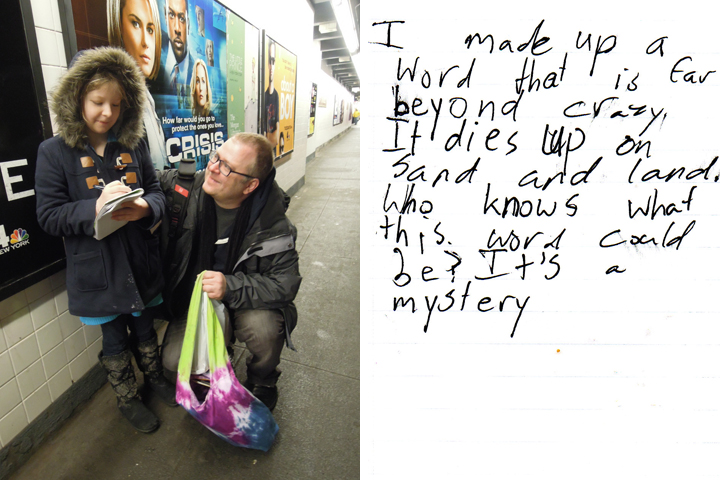 How far would you go to
protect the ones you love...
CRISIS
E
4
NEW YORK
BOY
I made up a
word that is far
beyond crazy.
It dies up on
sand and land.
Who knows what
this word could
be? It's a
mystery